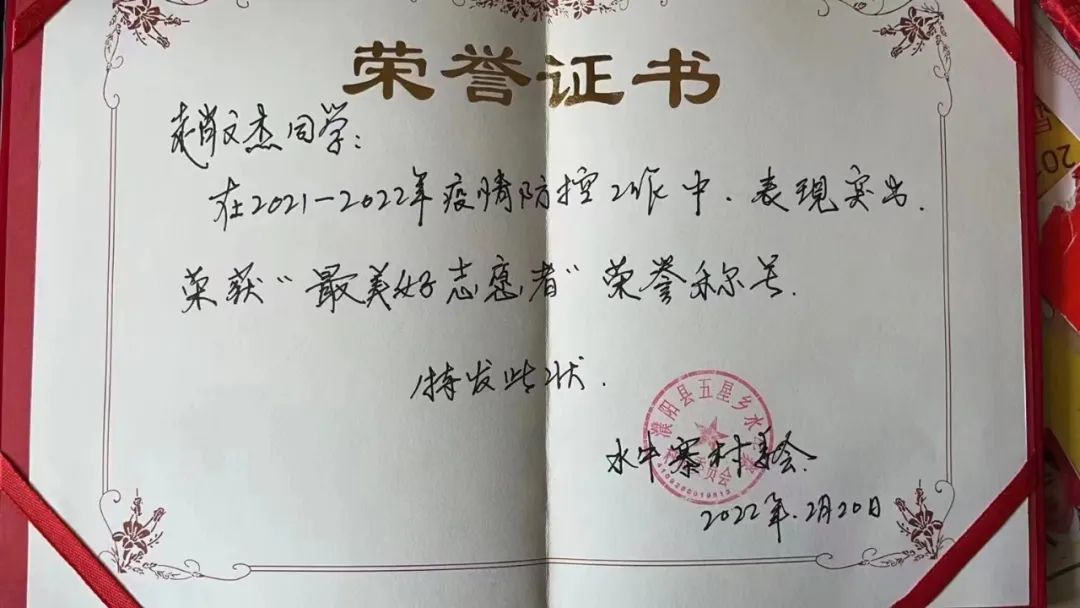 荣誉证书
赵文杰同学：
在2021-2022年疫情防控工作中、表现突出.
荣获“最美好志愿者”荣誉称号.
特发此状.
濮阳县五星乡水
水牛寨村委会.
2022年.2月20日